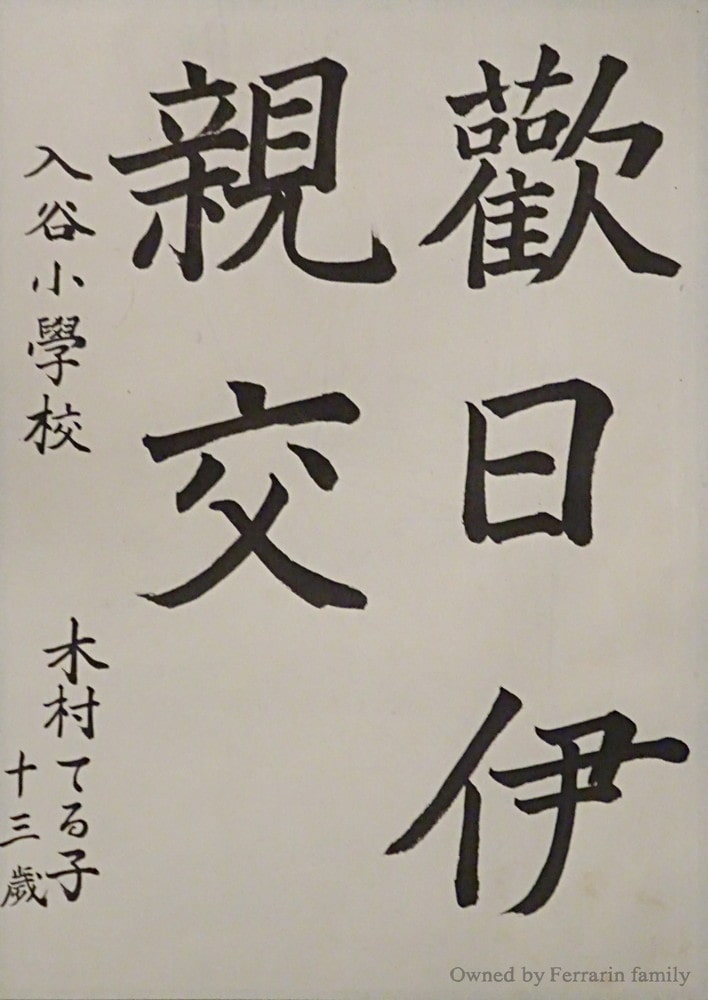 歡日伊
親交
入谷小學校
木村てる子
十三歲
Owned by Ferrarin family